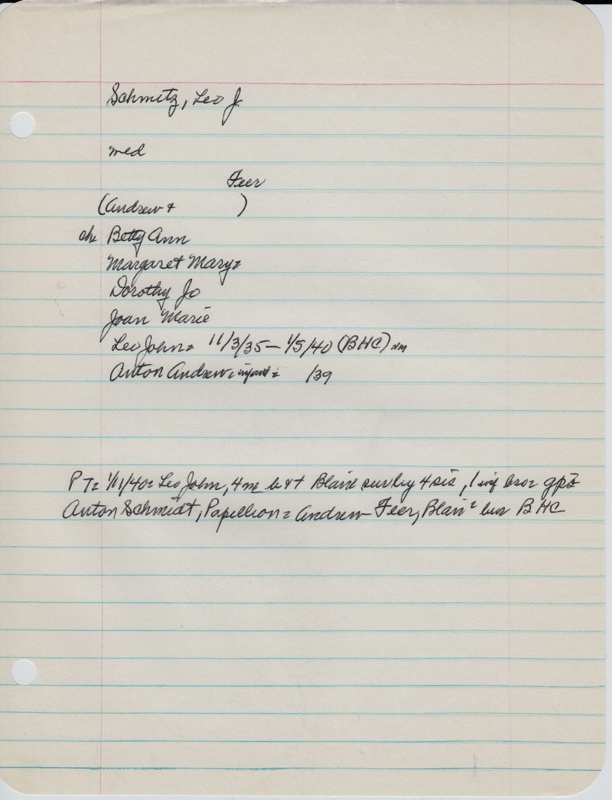 Schmitz, Leo J.
med
Feer
(Andrew + )
ch Betty Ann
Margaret Mary=
Dorothy Jo
Joan Marie
Leo John= 11/3/35 – 1/5/40 (BHC) nm
Anton Andrew= infant= /39
PT= 1/11/40= Leo John, 4 m Blair sur by 4 sis, 1 inf bro= gps
Anton Schmidt, Papillion= Andrew Feer, Blair= bur BHC